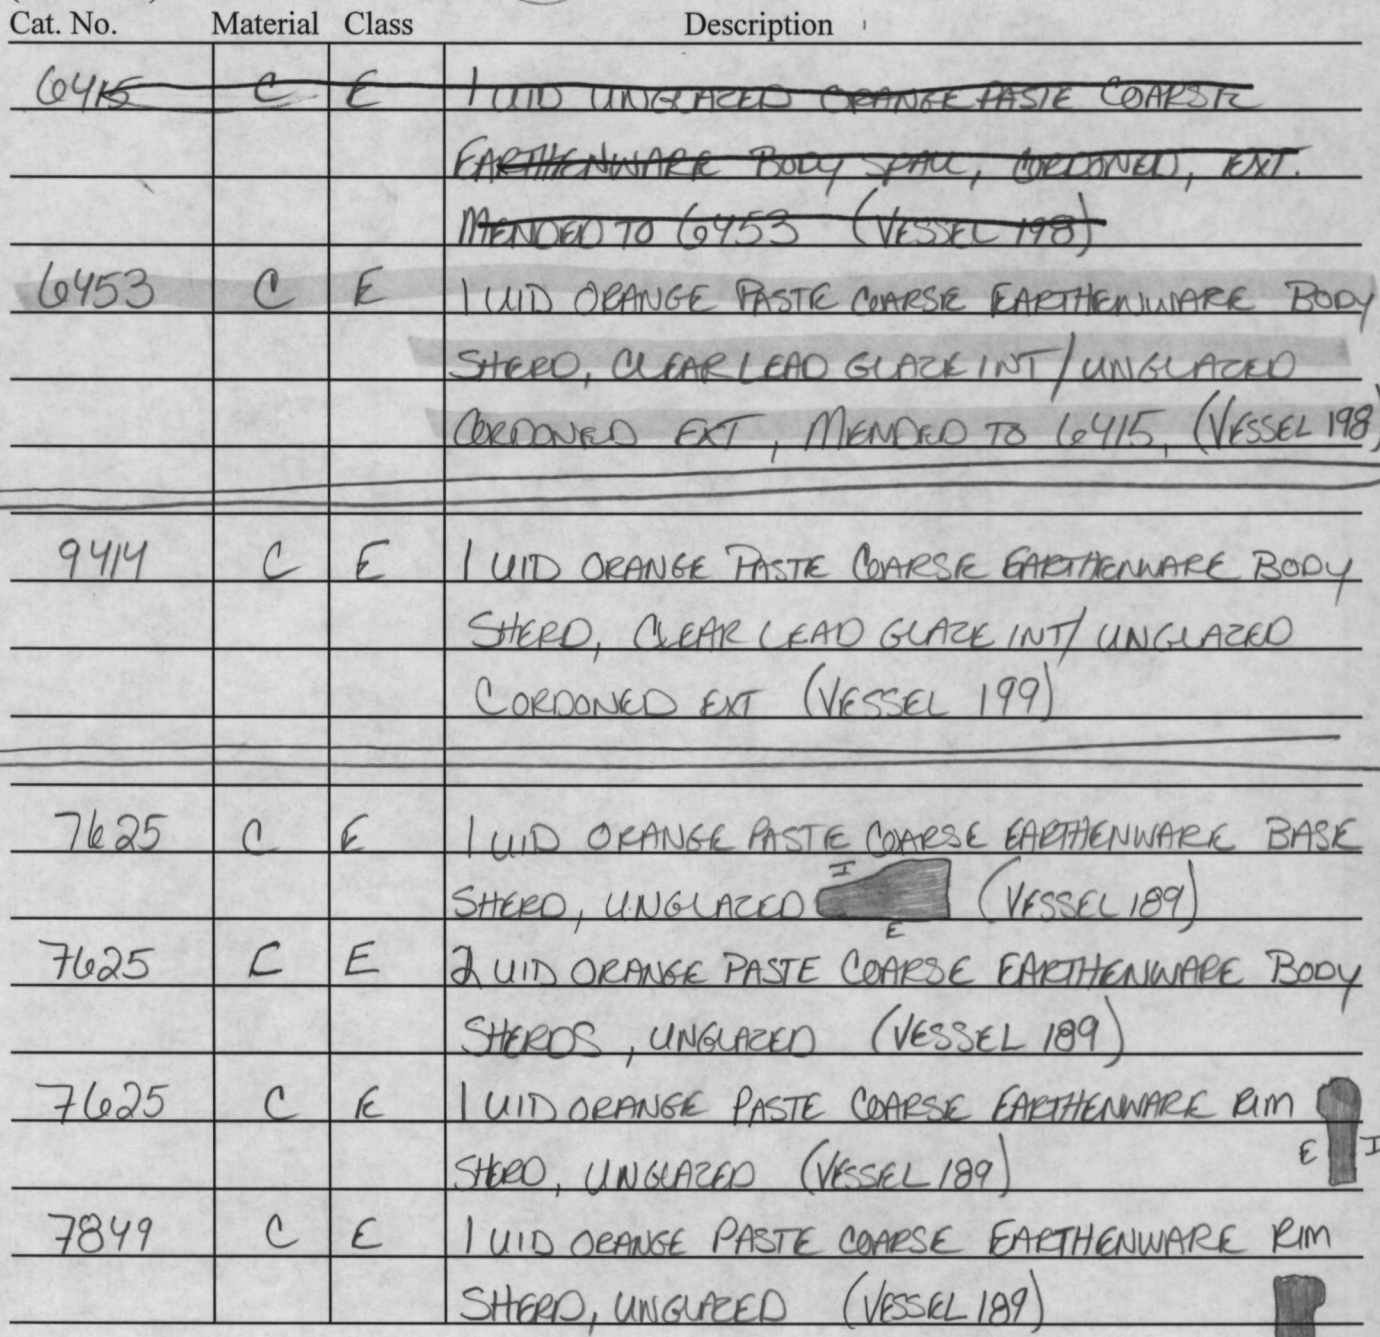 Cat. No. Material Class Description
6415 C E 1 UID UNGLAZED ORANGE PASTE COARSE
EARTHENWARE BODY SPALL, CORDONED, EXT.
MENDED TO 6453 (VESSEL 198)
6453 C E 1 UID ORANGE PASTE COARSE EARTHENWARE BODY
SHERD, CLEAR LEAD GLAZE INT/UNGLAZED
CORDONED EXT, MENDED TO 6415, (VESSEL 198)
9414 C E 1 UID ORANGE PASTE COARSE EARTHENWARE BODY
SHERD, CLEAR LEAD GLAZE INT/UNGLAZED
CORDONED EXT (VESSEL 199)
7625 C E 1 UID ORANGE PASTE COARSE EARTHENWARE BASE
SHERD, UNGLAZED I E (VESSEL 189)
7625 C E 2 UID ORANGE PASTE COARSE EARTHENWARE BODY
SHERDS, UNGLAZED (VESSEL 189)
7625 C E 1 UID ORANGE PASTE COARSE EARTHENWARE RIM
SHERD, UNGLAZED (VESSEL 189) E I
7849 C E 1 UID ORANGE PASTE COARSE EARTHENWARE RIM
SHERD, UNGLAZED (VESSEL 189)